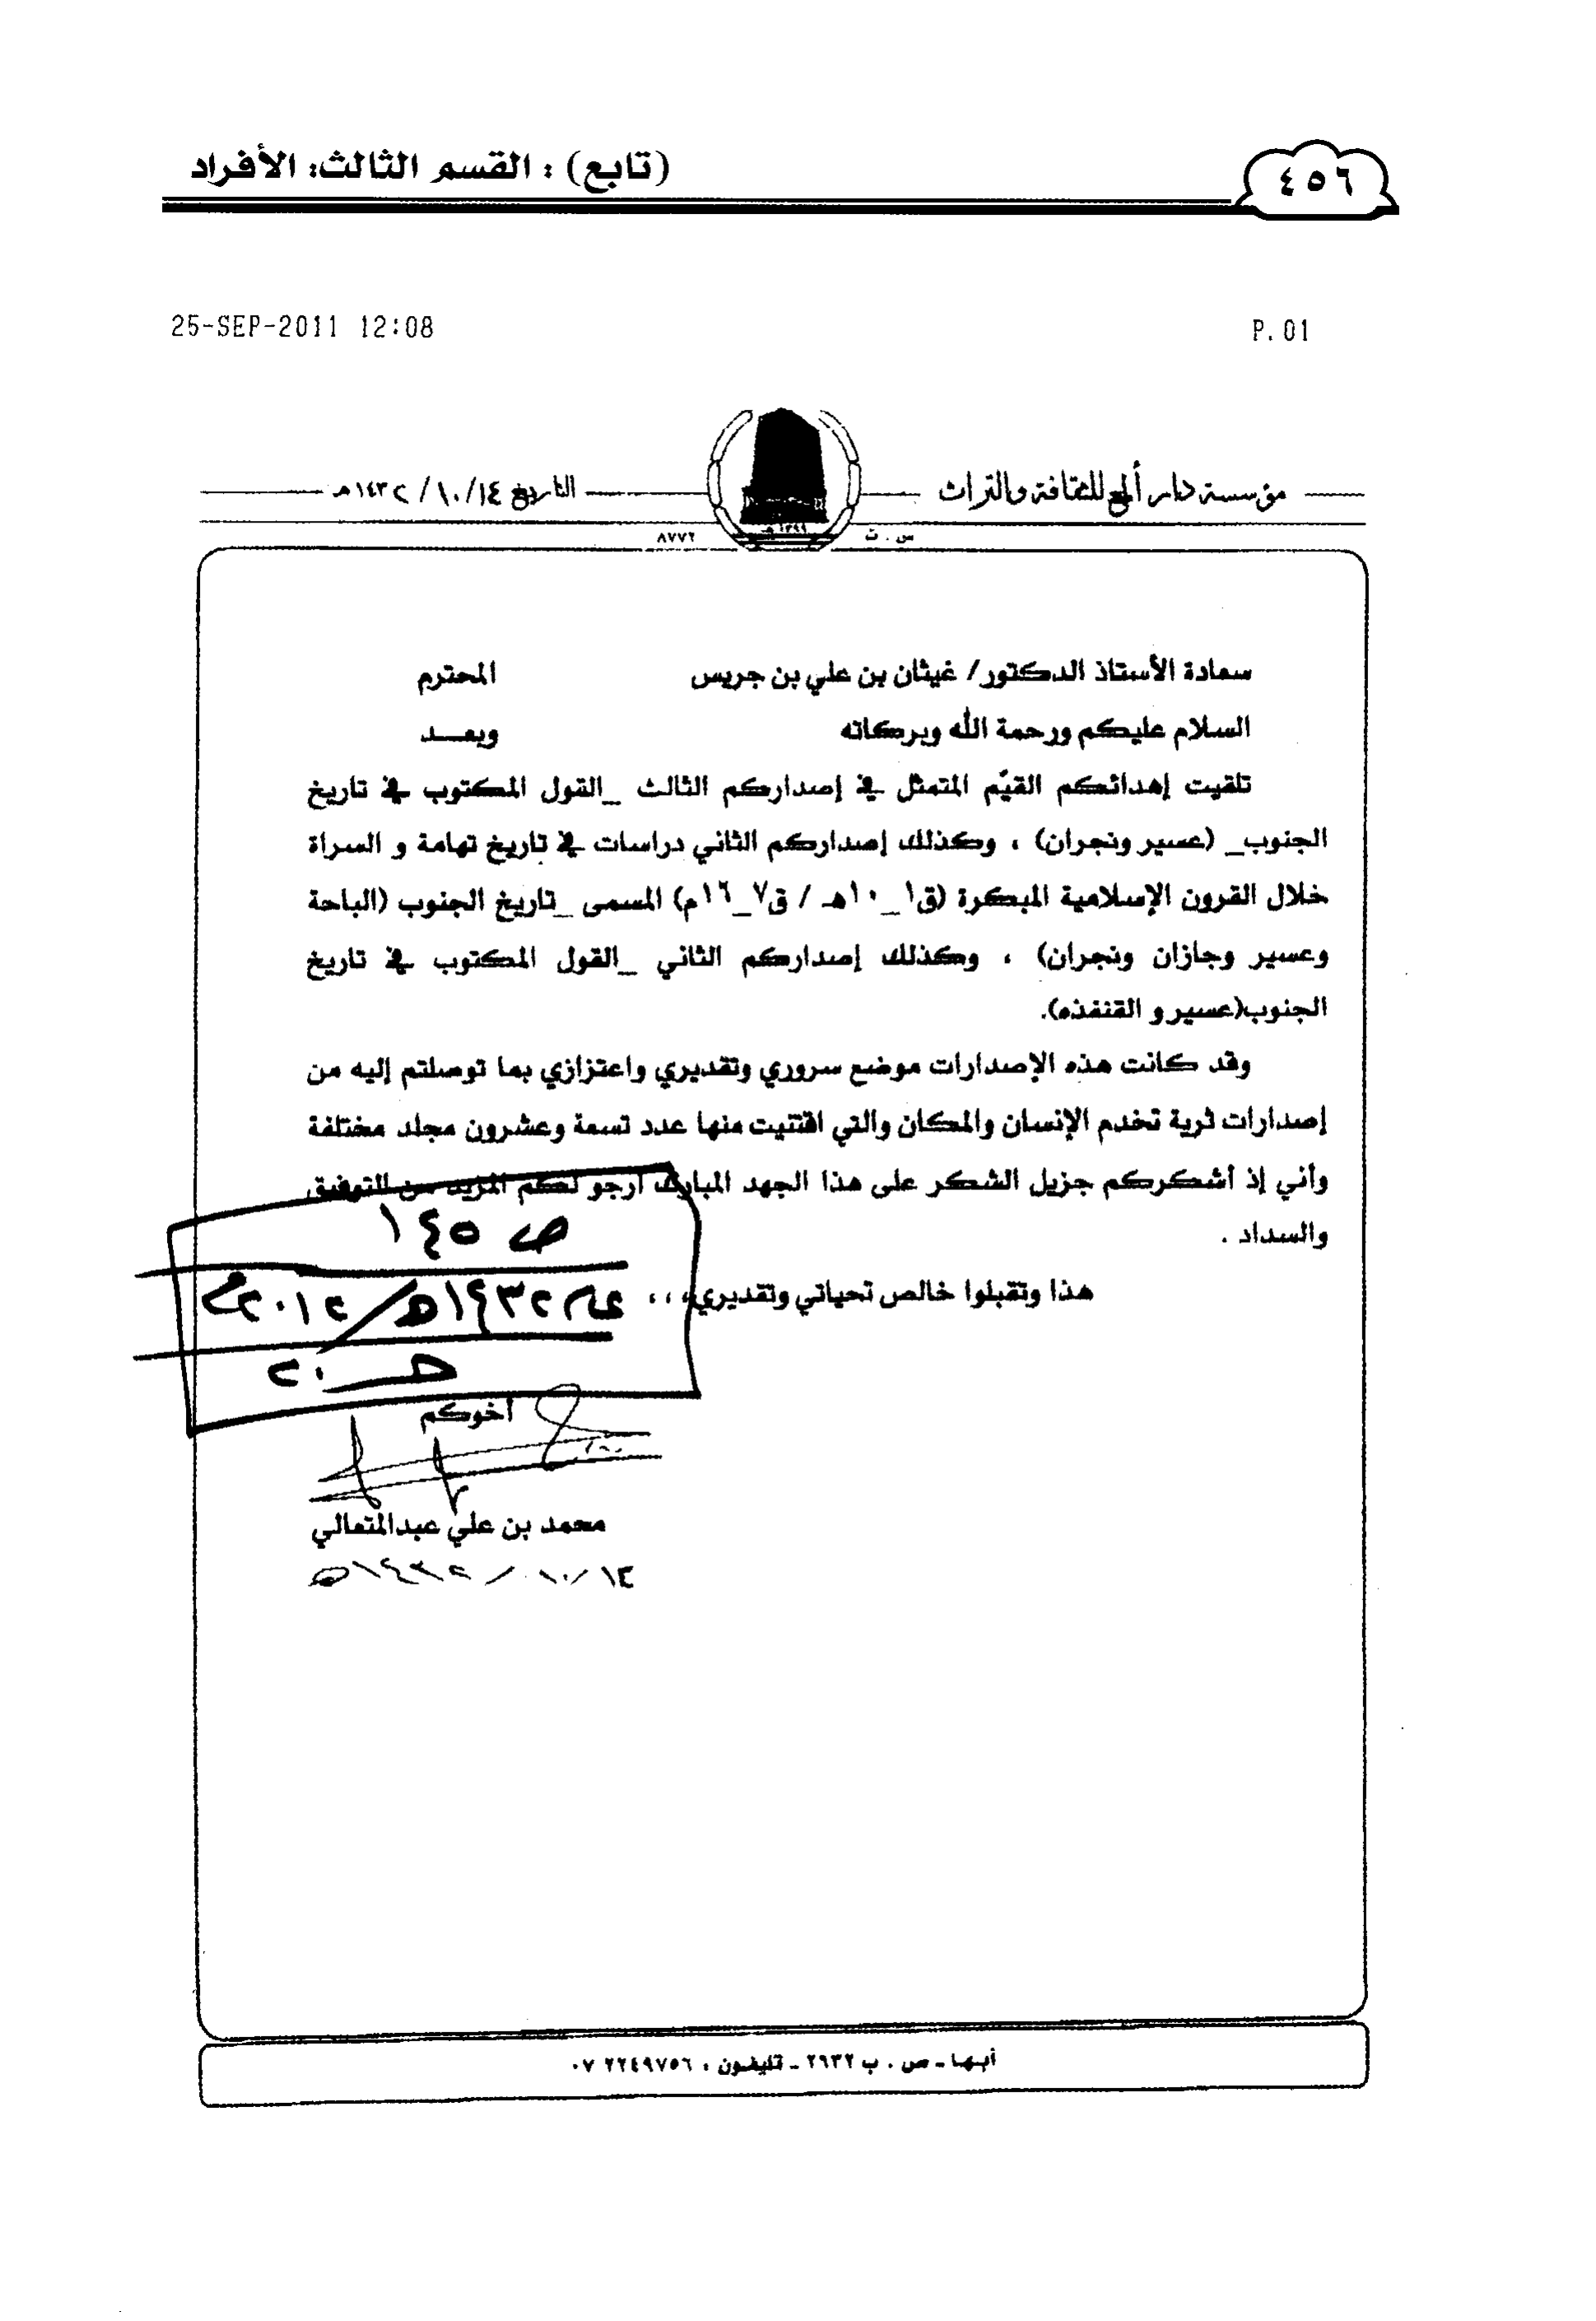 ٤٥٦
(تابع) : القسم الثالث: الأفراد
25-SEP-2011 12:08
P.01
مؤسسة دار ألمع للثقافة والتراث
التاريخ ١٤/ ١٠/ ١٤٣٢هـ
١٣٩٩هـ
س . ت
٨٧٧٢
سعادة الأستاذ الدكتور/ غيثان بن علي بن جريس المحترم
السلام عليكم ورحمة الله وبركاته وبعـــد
تلقيت إهدائكم القيّم المتمثل في إصداركم الثالث _القول المكتوب في تاريخ
الجنوب_ (عسير ونجران) ، وكذلك إصداركم الثاني دراسات في تاريخ تهامة و السراة
خلال القرون الإسلامية المبكرة (ق١_١٠هـ / ق٧_١٦م) المسمى _تاريخ الجنوب (الباحة
وعسير وجازان ونجران) ، وكذلك إصداركم الثاني _القول المكتوب في تاريخ
الجنوب(عسير و القنفذه).
وقد كانت هذه الإصدارات موضع سروري وتقديري واعتزازي بما توصلتم إليه من
إصدارات ثرية تخدم الإنسان والمكان والتي اقتنيت منها عدد تسعة وعشرون مجلد مختلفة
وأني إذ أشكركم جزيل الشكر على هذا الجهد المبارك أرجو لكم المزيد من التوفيق
والسداد .
ص ١٤٥
هذا وتقبلوا خالص تحياتي وتقديري، ، ،
عام ١٤٣٢هـ/ ٢٠١٢م
حـ ٢٠
أخوكم
محمد بن علي عبدالمتعالي
١٤/ ١٠/ ١٤٣٢هـ
أبها - ص . ب ٢٦٣٢ - تليفون : ٢٢٤٩٧٥٦ ٠٧